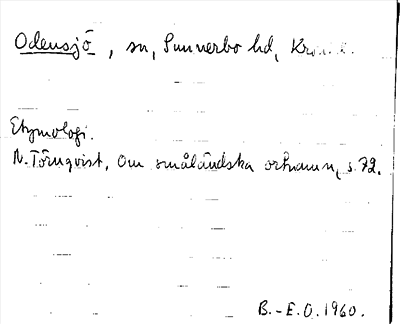 Odensjö, sn, Sunnerbo hd,
Etymologi.
N. Törnqvist, Om småländska ortnamn, s. 72.
B.-E.O. 1960.